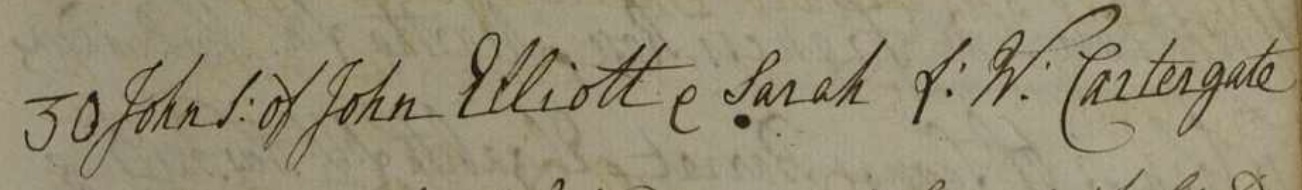 30 John S: of John Elliott & Sarah f: W: Cartergate